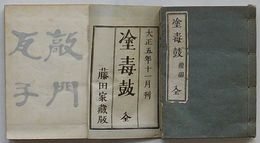 塗毒鼓
全
大正五年十一月刊
塗毒鼓
全
藤田家藏版
敲門
瓦子